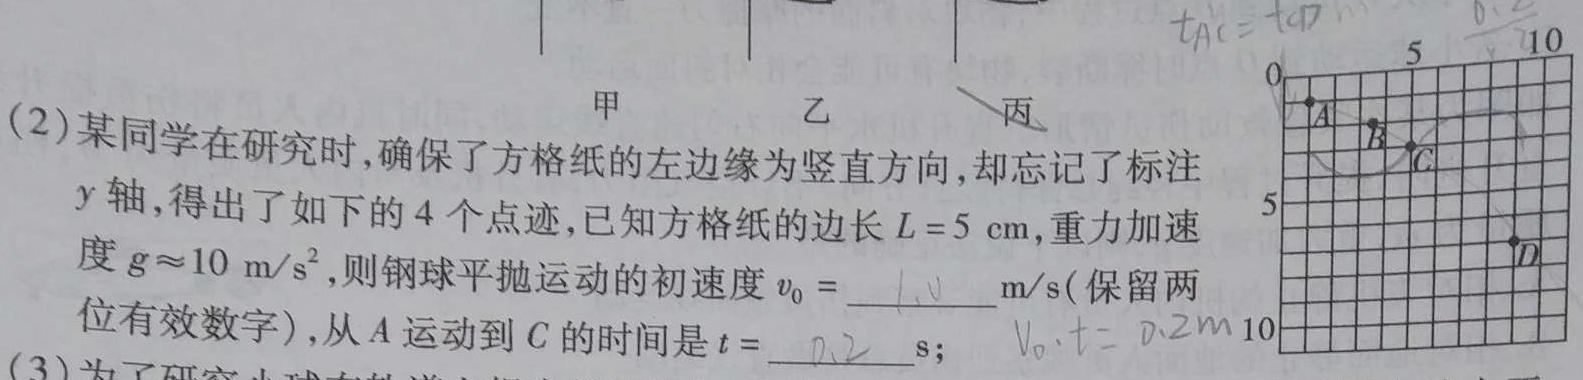 甲 乙 丙
(2)某同学在研究时,确保了方格纸的左边缘为竖直方向,却忘记了标注
y 轴,得出了如下的 4 个点迹,已知方格纸的边长 L=5 cm,重力加速
度 g≈10 m/s²,则钢球平抛运动的初速度 v₀ = 1.0 m/s(保留两
位有效数字),从 A 运动到 C 的时间是 t= 0.2 s;
V₀·t= 0.2m
t_AC = t_CD
0 5 10
A
B
C
5
D
10